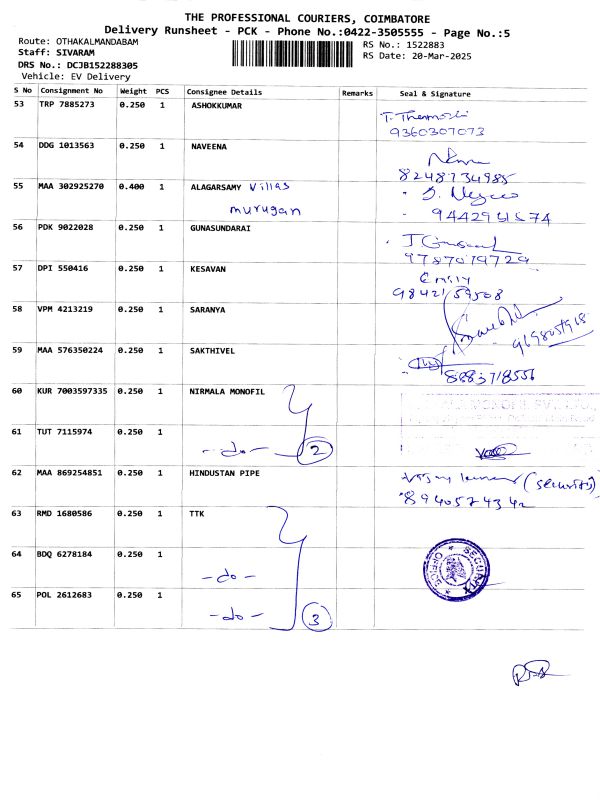 THE PROFESSIONAL COURIERS, COIMBATORE
Delivery Runsheet - PCK - Phone No.:0422-3505555 - Page No.:5
Route: OTHAKALMANDABAM
Staff: SIVARAM
DRS No.: DCJB152288305
Vehicle: EV Delivery
RS No.: 1522883
RS Date: 20-Mar-2025
S No Consignment No Weight PCS Consignee Details Remarks Seal & Signature
53 TRP 7885273 0.250 1 ASHOKKUMAR
9360307073
54 DDG 1013563 0.250 1 NAVEENA
8248734985
55 MAA 302925270 0.400 1 ALAGARSAMY Villas
murugan
56 PDK 9022028 0.250 1 GUNASUNDARAI
9787079729
57 DPI 550416 0.250 1 KESAVAN
9842159508
58 VPM 4213219 0.250 1 SARANYA
59 MAA 576350224 0.250 1 SAKTHIVEL
8883718556
60 KUR 7003597335 0.250 1 NIRMALA MONOFIL
61 TUT 7115974 0.250 1 -do- 2
62 MAA 869254851 0.250 1 HINDUSTAN PIPE (security)
63 RMD 1680586 0.250 1 TTK
64 BDQ 6278184 0.250 1 -do-
SECURITY OFFICE
65 POL 2612683 0.250 1 -do- 3